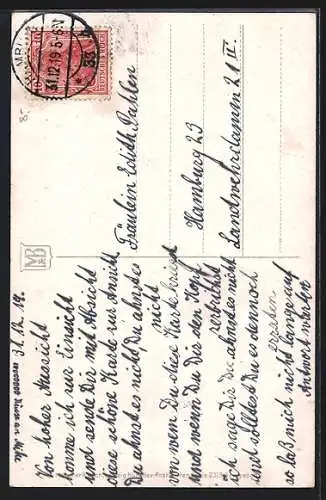 31.12.19.
Von hoher Aussicht
komme ich zur Einsicht
und sende Dir mit Absicht
diese schöne Karte zur Ansicht
Du ahnst es nicht, Du ahnst es
nicht
von wem Du diese Karte kriegst
und wenn Du Dir den Kopf
zerbrichst
ich sage Dir du ahnst es nicht
und solltest Du es dennoch
erraten
so laß mich nicht lange auf
Antwort warten
31.12.19.5-6N
DEUTSCHES REICH
Fräulein Edith Dahlen
Hamburg 23
Landwehrdamm 21 II.